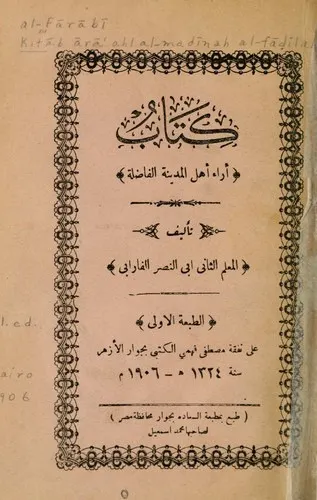 al-Fārābī
Kitāb ārā' ahl al-madīnah al-fāḍilah
كتاب
﴿ أراء أهل المدينة الفاضلة ﴾
﴿ تأليف ﴾
﴿ المعلم الثانى ابى النصر الفارابى ﴾
﴿ الطبعة الاولى ﴾
على نفقة مصطفى فهمي الكتبى بجوار الأزهر
سنة ١٣٢٤ ه - ١٩٠٦ م
( طبع بمطبعة السعاده بجوار محافظة مصر )
لصاحبها محمد اسمعيل
1. ed.
airo
906